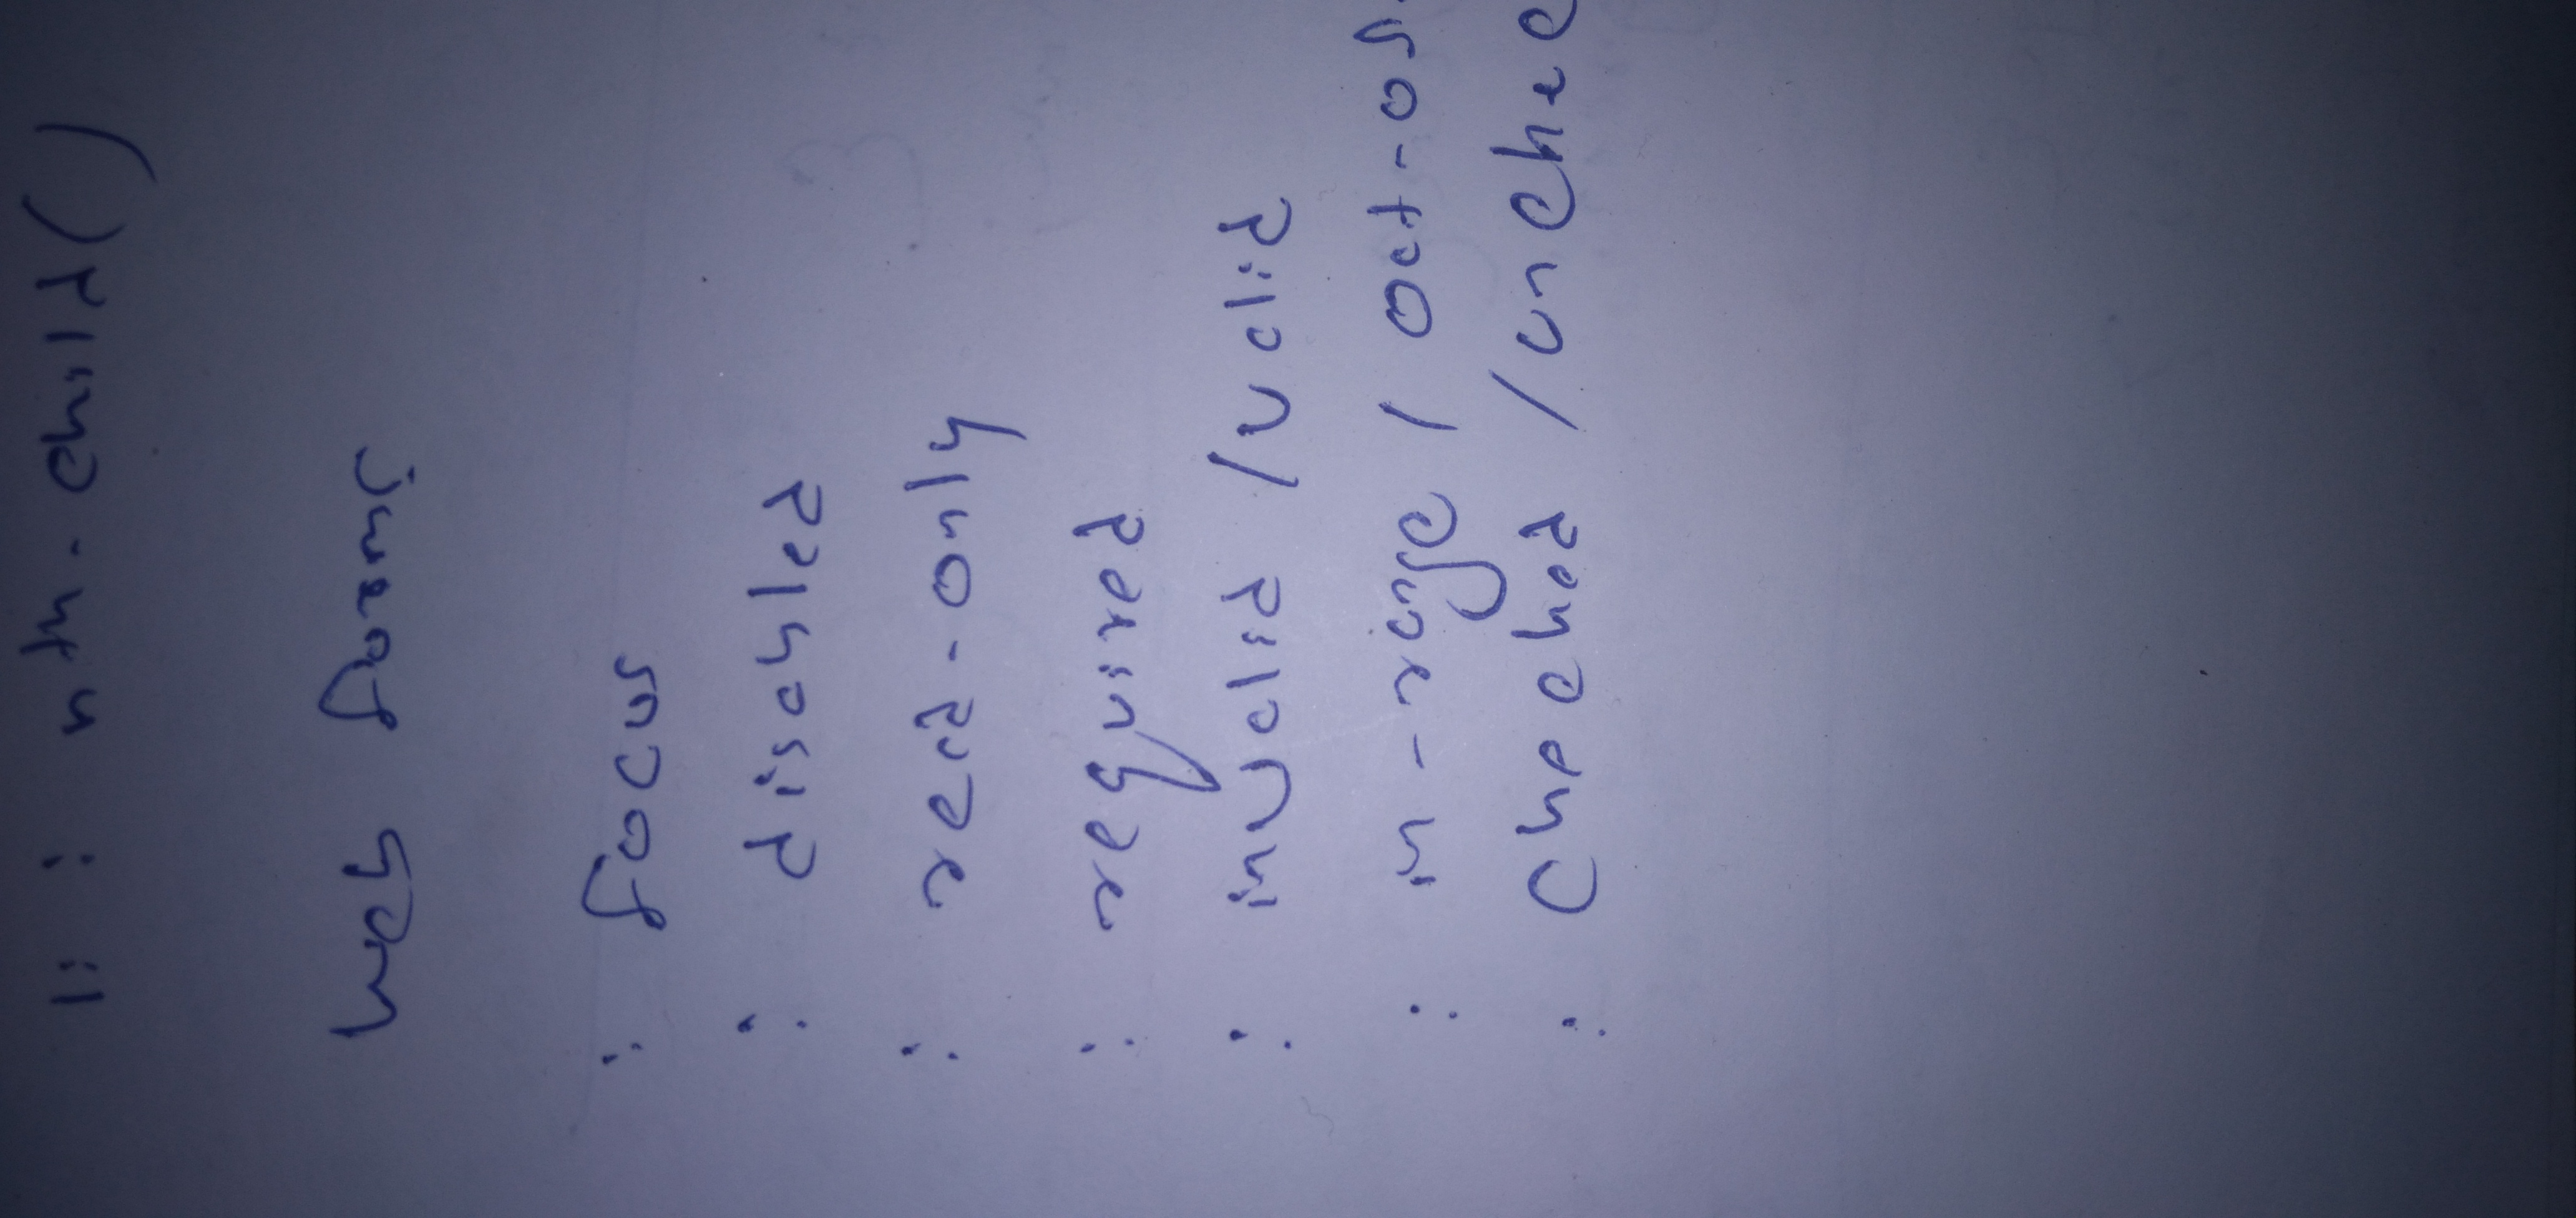 li : nth-child()
Web forms
: focus
: disabled
: read-only
: required
: invalid / valid
: in-range / out-of-
: checked / unchec